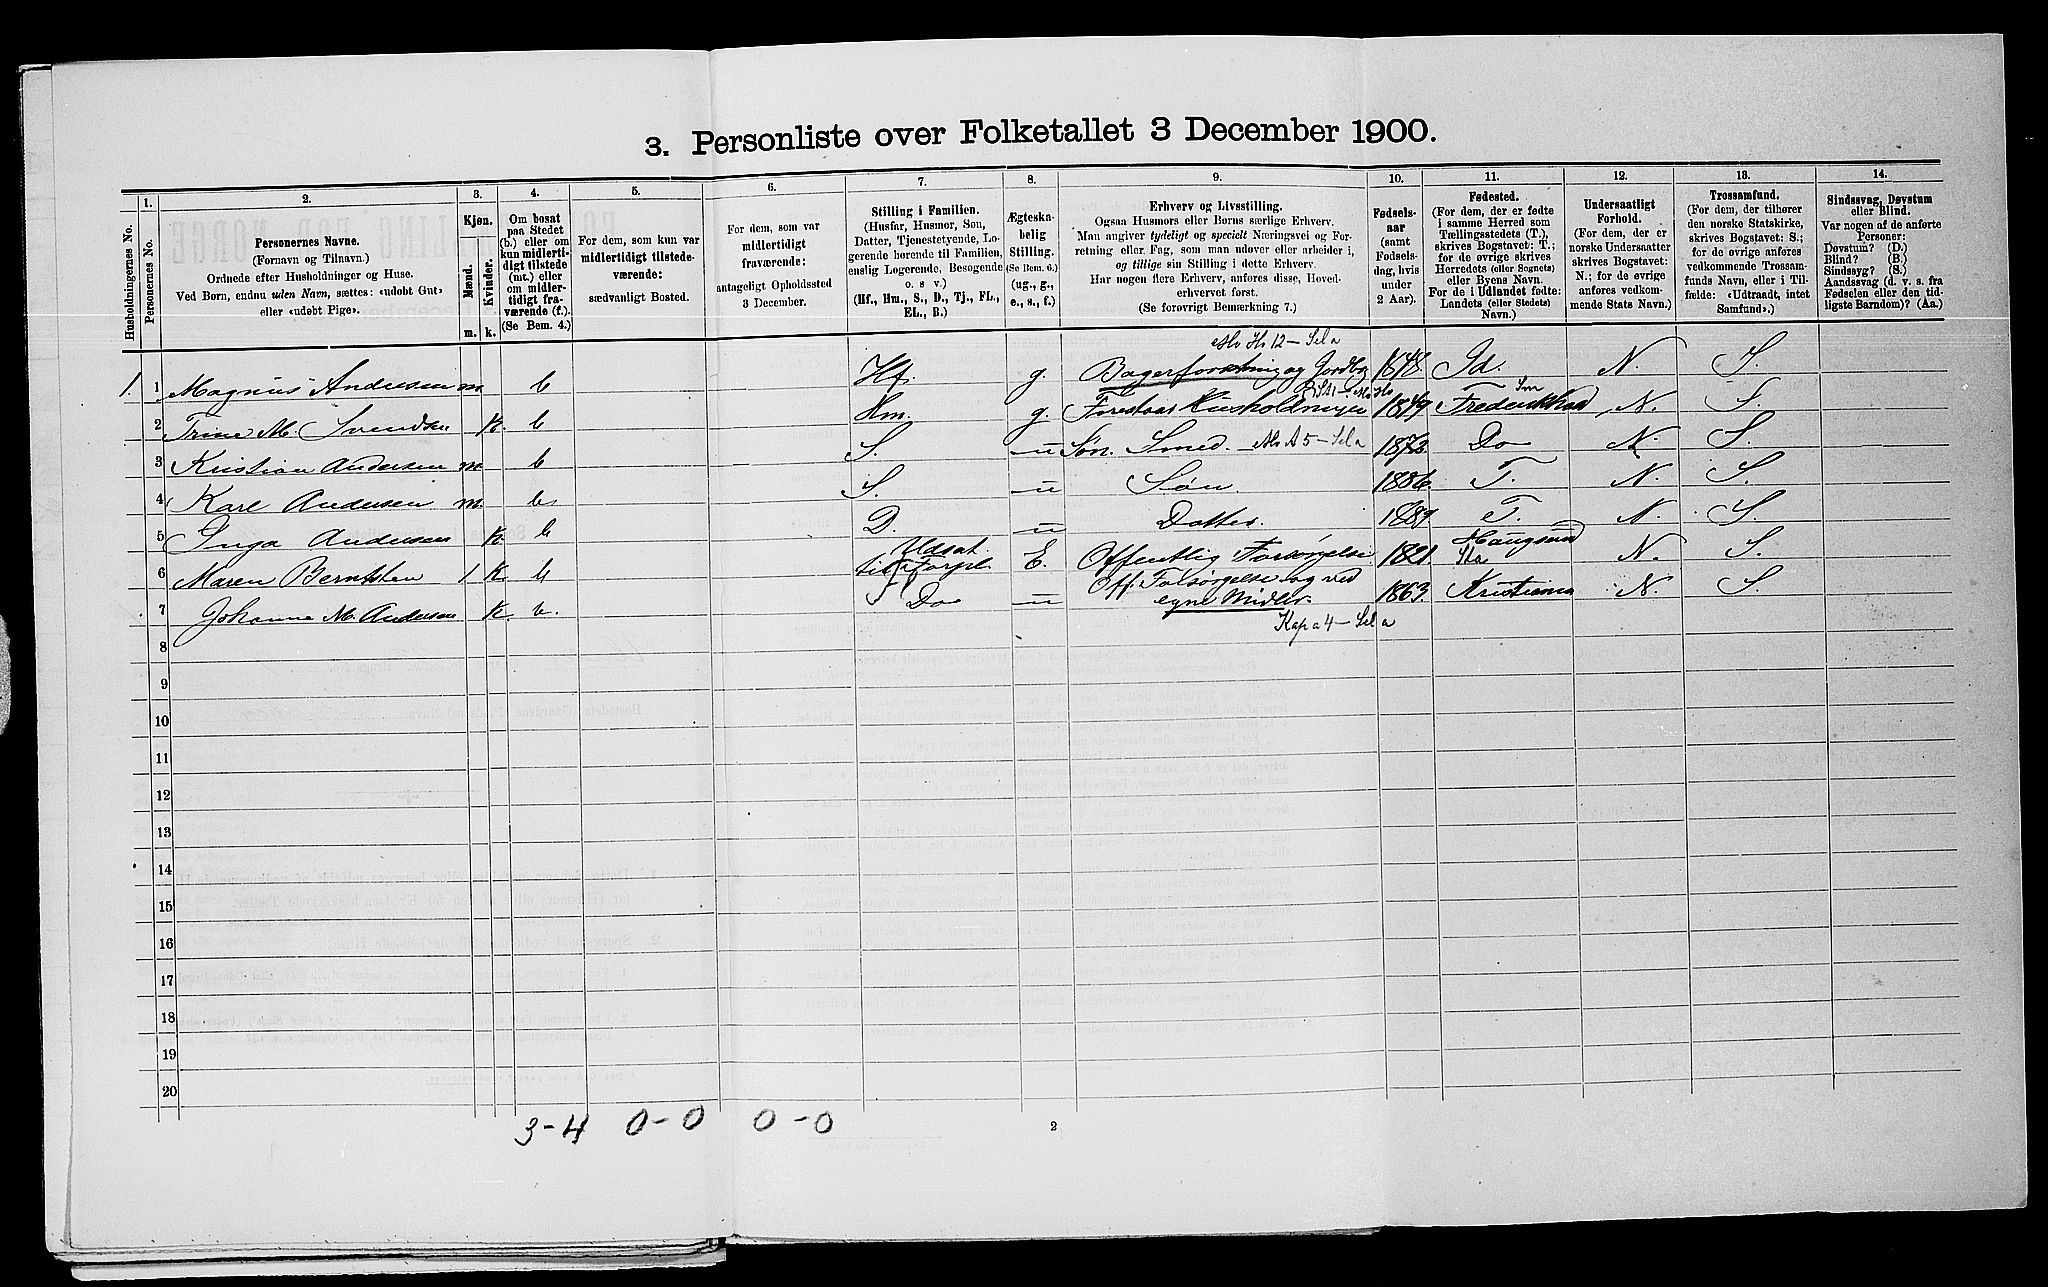 3. Personliste over Folketallet 3 December 1900.
Husholdningernes No.
1. Personernes No.
2. Personernes Navne.
(Fornavn og Tilnavn.)
Ordnede efter Husholdninger og Huse.
Ved Børn, endnu uden Navn, sættes: «udøbt Gut»
eller «udøbt Pige».
3. Kjøn.
Mænd. Kvinder.
m. k.
4. Om bosat
paa Stedet
(b.) eller om
kun midlerti-
digt tilstede
(mt.) eller
om midler-
tidigt fra-
værende (f.).
(Se Bem. 4.)
5. For dem, som kun var
midlertidigt tilstede-
værende:
sædvanligt Bosted.
6. For dem, som var
midlertidigt
fraværende:
antageligt Opholdssted
3 December.
7. Stilling i Familien.
(Husfar, Husmor, Søn,
Datter, Tjenestetyende, Lo-
gerende hørende til Familien,
enslig Logerende, Besøgende
o. s v.)
(Hf., Hm., S., D., Tj., FL.,
EL., B.)
8. Ægteska-
belig
Stilling.
(Se Bem. 6.)
(ug., g.,
e., s., f.)
9. Erhverv og Livsstilling.
Ogsaa Husmors eller Børns særlige Erhverv.
Man angiver tydeligt og specielt Næringsvei og For-
retning eller Fag, som man udøver eller arbeider i,
og tillige sin Stilling i dette Erhverv.
Har nogen flere Erhverv, anføres disse, Hoved-
erhvervet først.
(Se forøvrigt Bemerkning 7.)
10. Fødsels-
aar
(samt
Fødsels-
dag, hvis
under
2 Aar).
11. Fødested.
(For dem, der er fødte
i samme Herred som
Tællingsstedets (T.),
skrives Bogstavet: T.;
for de øvrige skrives
Herredets (eller Sognets)
eller Byens Navn.
For de i Udlandet fødte:
Landets (eller Stedets)
Navn.)
12. Undersaatligt
Forhold.
(For dem, der er
norske Undersaatter
skrives Bogstavet:
N.; for de øvrige
anføres vedkom-
mende Stats Navn.)
13. Trossamfund.
(For dem, der tilhører
den norske Statskirke,
skrives Bogstavet: S.;
for de øvrige anføres
vedkommende Trossam-
funds Navn, eller i Til-
fælde: «Udtraadt, intet
Samfund».)
14. Sindssvag, Døvstum
eller Blind.
Var nogen af de anførte
Personer:
Døvstum? (D.)
Blind? (B.)
Sindssyg? (S.)
Aandssvag (d. v. s. fra
Fødselen eller den tid-
ligste Barndom)? (Aa.)
1. 1 Magnus Andersen m. b Hf. g. Bagerforretning og Jordbr 1848. Id. N. S.
2 Trine M. Svendsen k. b Hm. g. Forestaar Husholdningen 1849 Fredrikshald N. S.
3 Kristian Andersen m. b S. u Søn. Smed. 1873. Do N. S.
4 Karl Andersen m. b. S. u Søn. 1886. T. N. S.
5 Inga Andersen k. b D. u Datter. 1889. T. N. S.
6 Maren Berntsten 1 k. b Udsat til Forpl. E. Offentlig Forsørgelse 1821. Haugsund N. S.
7 Johanne M. Andersen k. b. Do u Off. Forsørgelse og ved egne Midler. 1863. Kristiania N. S.
8
9
10
11
12
13
14
15
16
17
18
19
20
3-4 0-0 0-0
2